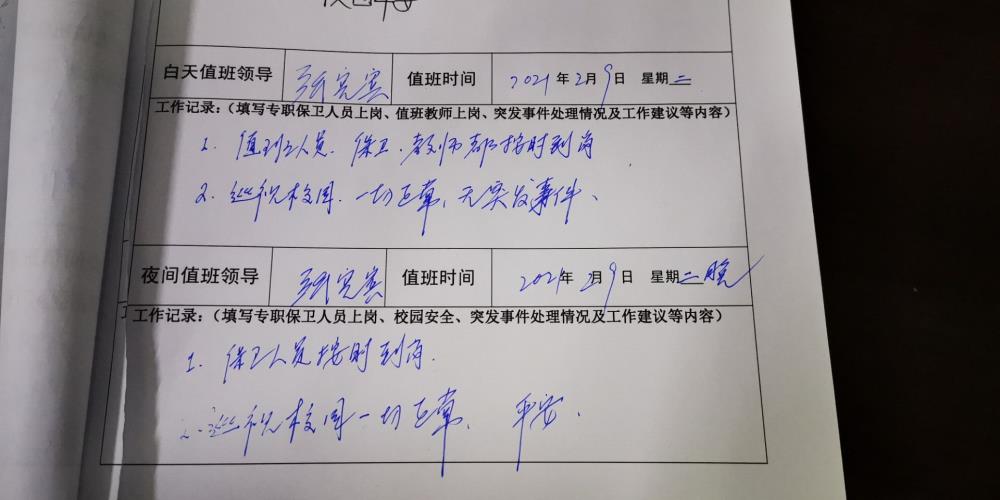 校园平安
白天值班领导 值班时间 2021年2月9日 星期二
工作记录:(填写专职保卫人员上岗、值班教师上岗、突发事件处理情况及工作建议等内容)
1. 值班人员、保卫、教师都按时到岗
2. 巡视校园、一切正常、无突发事件、
夜间值班领导 值班时间 2021年2月9日 星期二晚
工作记录:(填写专职保卫人员上岗、校园安全、突发事件处理情况及工作建议等内容)
1. 保卫人员按时到岗.
2. 巡视校园一切正常、平安.